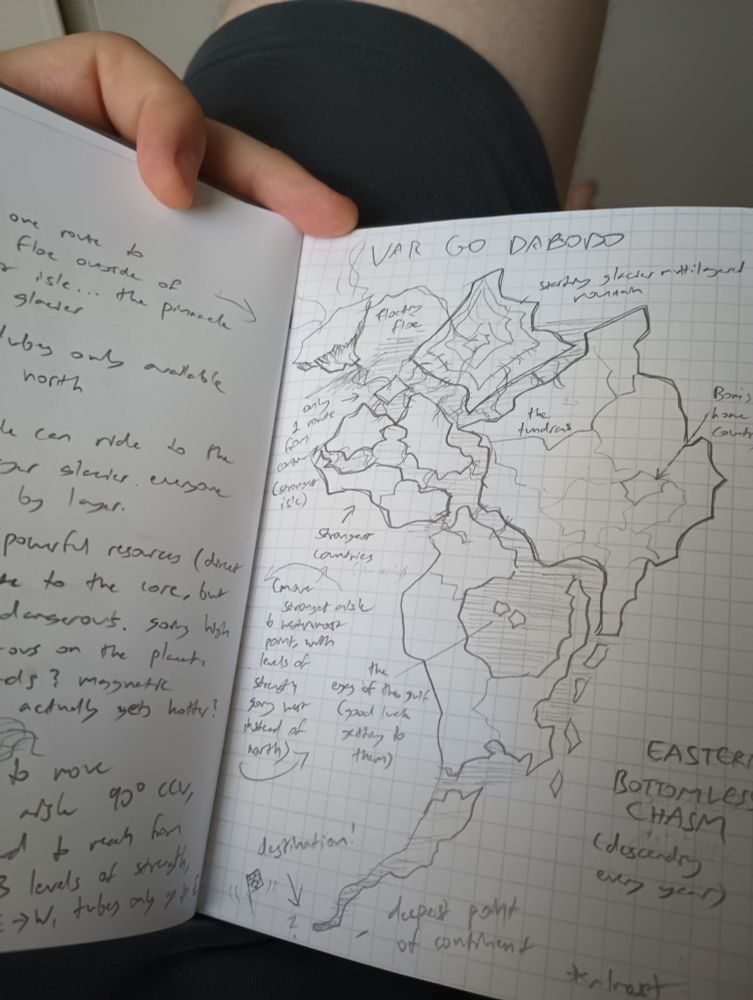 one route to
floe outside of
isle... the pinnacle
glacier
tubes only available
north
can ride to the
glacier. everyone
by layer.
powerful resources (direct
to the core, but
dangerous. going high
on the planet,
? magnetic
actually gets hotter?
to move
90° CCW,
to reach from
3 levels of strength,
E → W, tubes only
VAR GO DABODO
starting glacier multilayered
mountain
floating
floe
only
1 route
from
(strongest
isle)
the
tundras
home
strongest
countries
(move
strongest
to westernmost
point, with
levels of
strength
going west
instead of
north)
the
eyes of the gulf
(good luck
getting to
them)
EASTERN
BOTTOMLESS
CHASM
(descending
every year)
destination!
?
deepest point
of continent
*almost